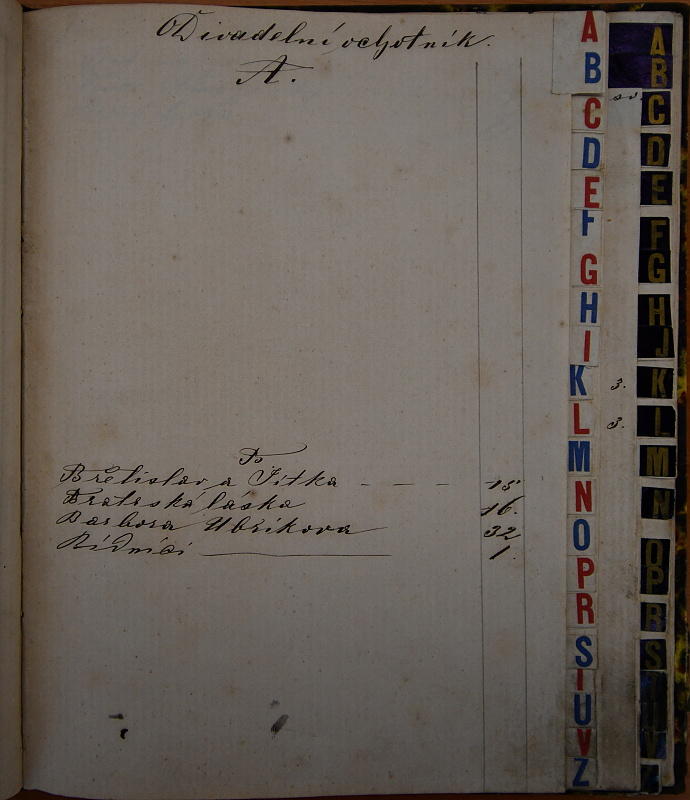 Divadelní ochotník.
A.
B
Břetislav a Jitka — — — 15
Bratrská láska 16.
Barbora Ubrikova 32
Bídníci 1.
A
B
C
D
E
F
G
H
I
K
L
M
N
O
P
R
S
U
V
Z
3.
3.
A
B
C
D
E
F
G
H
J
K
L
M
N
O
P
R
S
U
V
Z